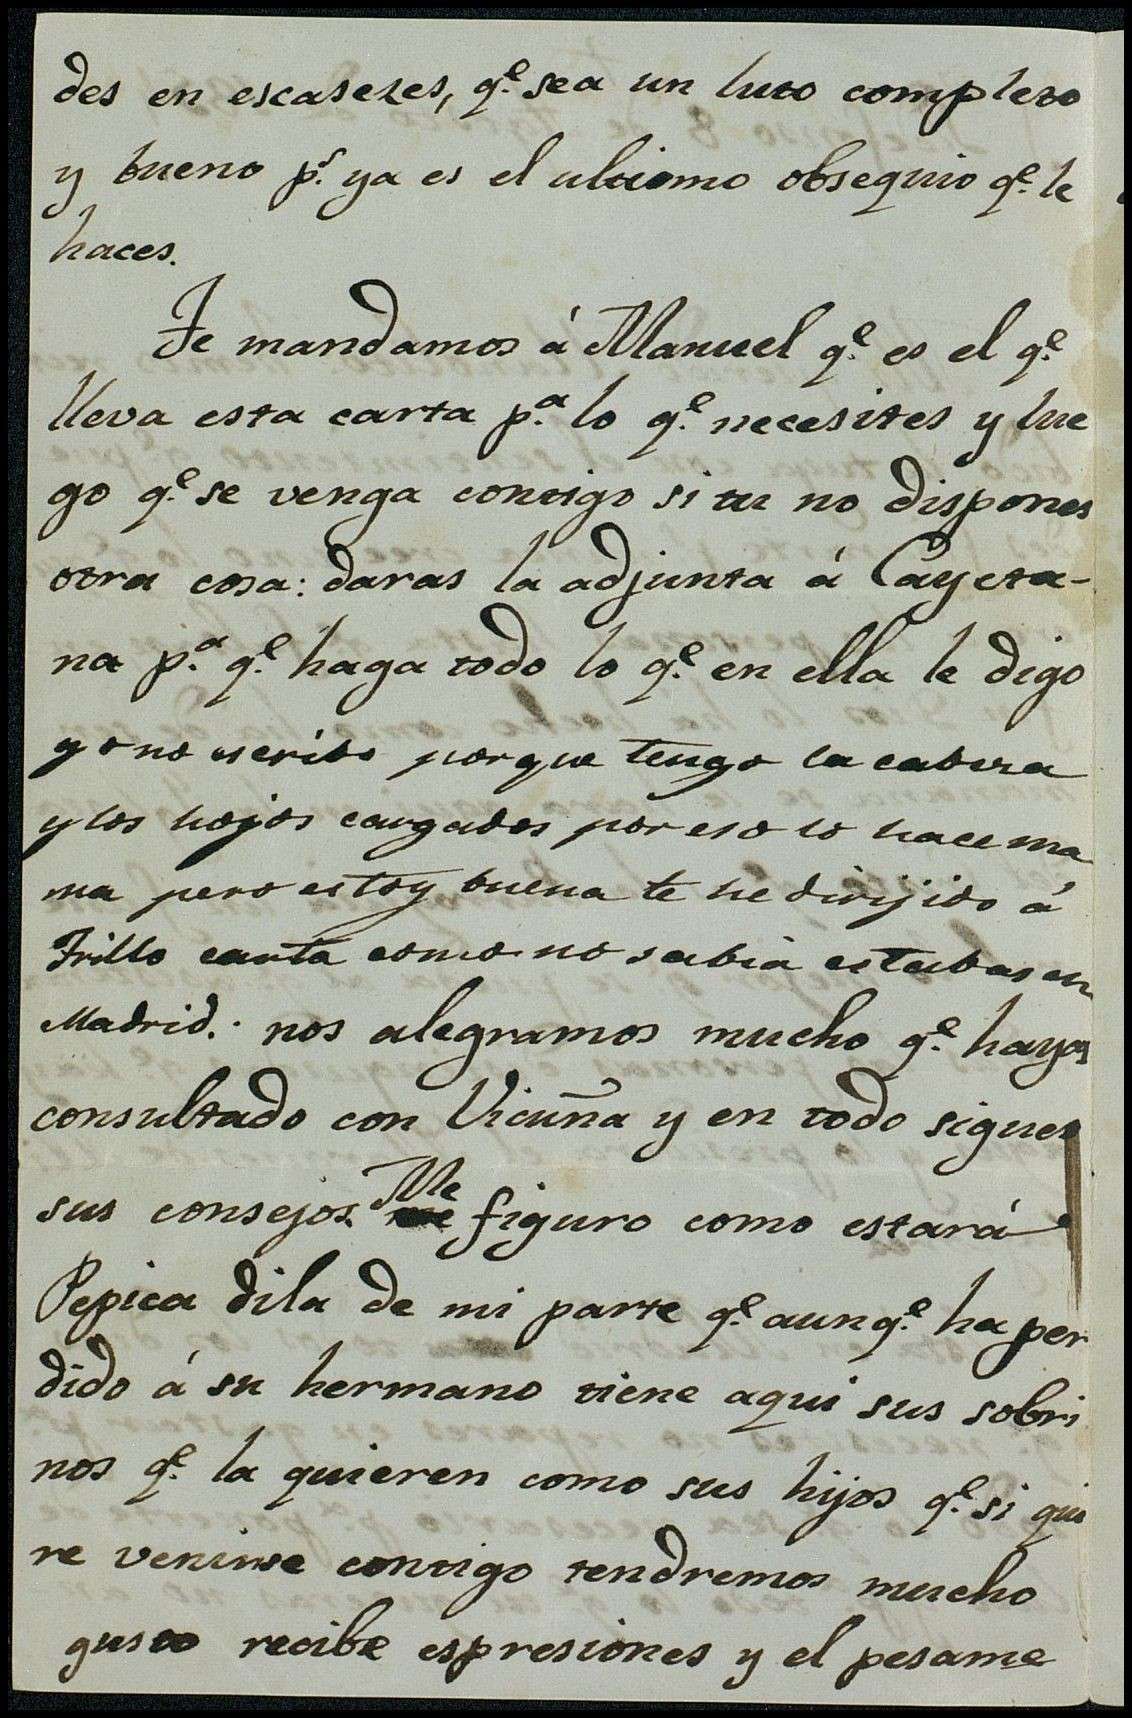 des en escaseses, q.e sea un luto completo
y bueno p.s ya es el ultiomo obsequio q.e le
haces.
Te mandamos á Manuel q.e es el q.e
lleva esta carta p.a lo q.e necesites y lue
go q.e se venga contigo si tu no dispones
otra cosa: daras la adjunta á Cayeta-
na p.a q.e haga todo lo q.e en ella le digo
yo no escribo porque tengo la cabeza
y los hojos cargados por eso lo hace ma
ma pero estoy buena te he dirijido á
Trillo carta como no sabia estabas en
Madrid.: nos alegramos mucho q.e hayas
consultado con Vicuña y en todo sigues
sus consejos. Me figuro como estará
Pepica dila de mi parte q.e aunq.e ha per
dido á su hermano tiene aqui sus sobri
nos q.e la quieren como sus hijos q.e si quie
re venirse contigo tendremos mucho
gusto recibe espresiones y el pesame